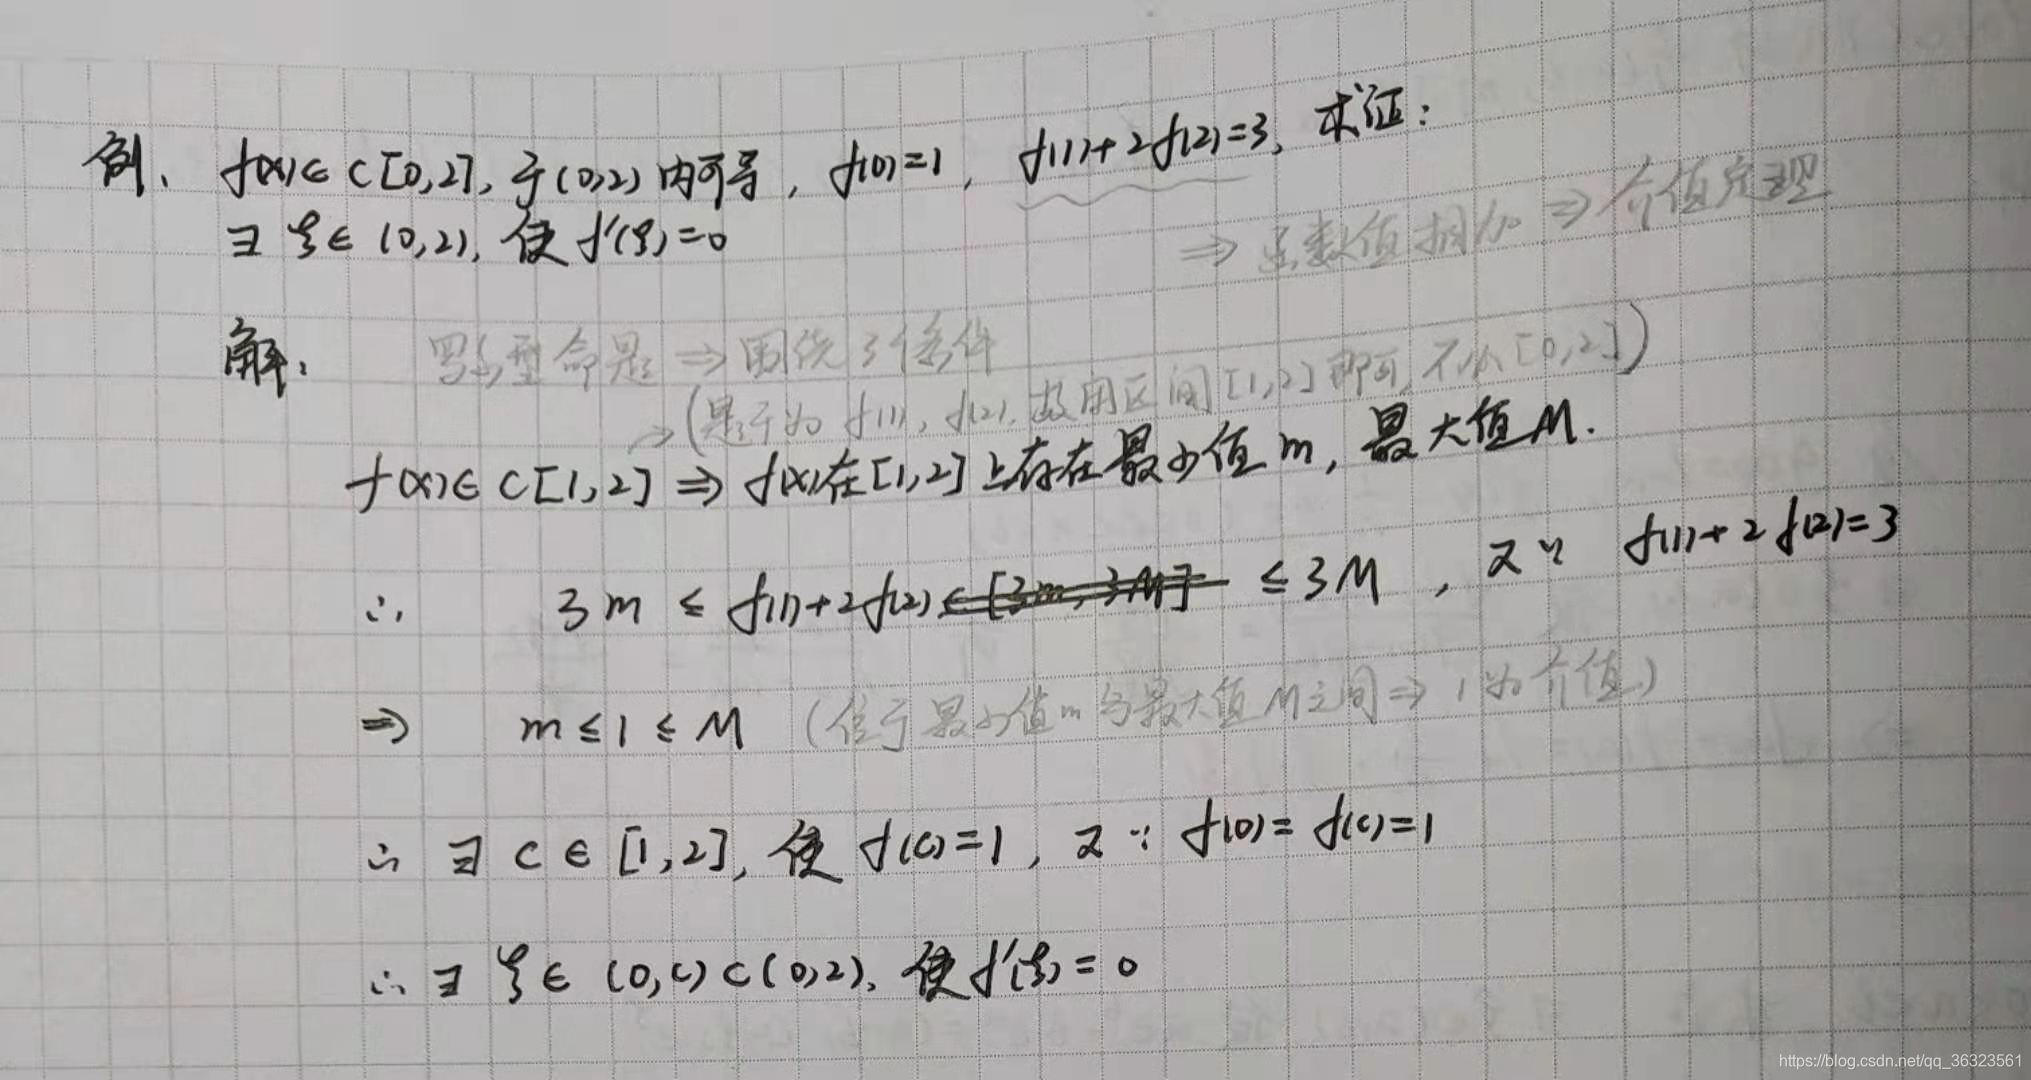 例、f(x)∈C[0,2],于(0,2)内可导,f(0)=1,f(1)+2f(2)=3,求证:
∃ξ∈(0,2),使f'(ξ)=0
⇒函数值相加⇒介值定理
解:
罗尔型命题⇒围绕3个条件
→(是于为f(1),f(2),故用区间[1,2]即可,不从[0,2])
f(x)∈C[1,2]⇒f(x)在[1,2]上存在最小值m,最大值M.
∴ 3m≤f(1)+2f(2)∈[3m,3M]≤3M,又∵f(1)+2f(2)=3
⇒ m≤1≤M(位于最小值m与最大值M之间⇒1为介值)
∴∃c∈[1,2],使f(c)=1,又∵f(0)=f(c)=1
∴∃ξ∈(0,c)⊂(0,2),使f'(ξ)=0
https://blog.csdn.net/qq_36323561